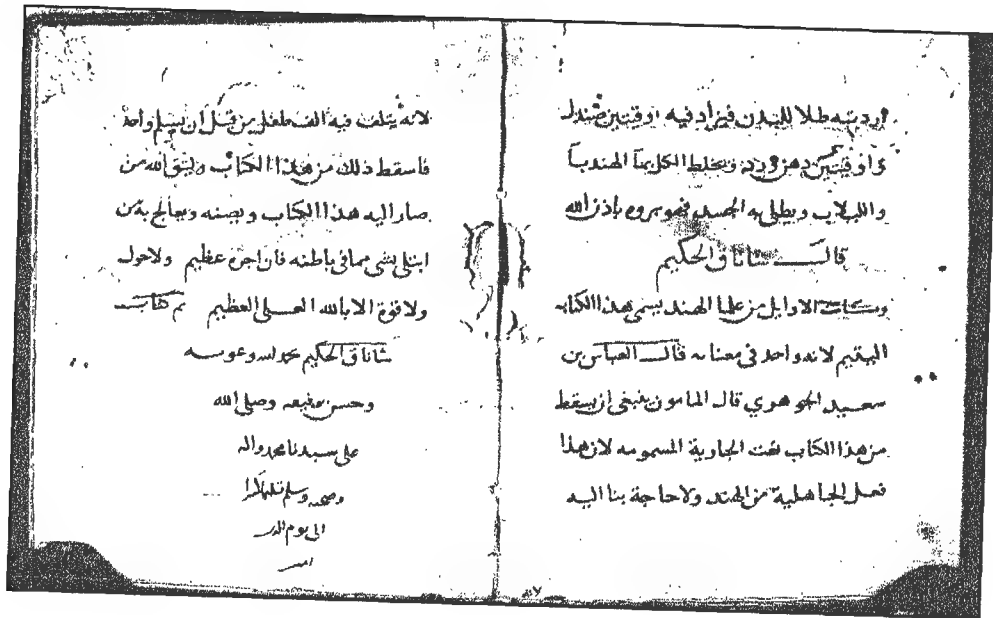 وردنيه طلا للبدن فيزاد فيه اوقيتين صندل
واوقيتين دهن ورد ويخلط الكل بما الهندبا
واللبلاب ويطلى به الجسد فهو بروه باذن الله
قالــــ شاناق الحكيم
وكانت الاوايل من علما الهند يسمى هذا الكتاب
اليتيم لانه واحد في معناه قالــ العباس بن
سعيد الجوهري قال المامون ينبغى ان يسقط
من هذا الكتاب نعت الجارية المسمومه لان هذا
فعل الجاهلية من الهند ولا حاجة بنا اليه
لانه يتلف فيه الف طفل من قبل ان يسلم واحد
فاسقط ذلك من هذا الكتاب وليتق الله من
صار اليه هذا الكتاب ويصنه ويعالج به من
ابتلى بشى مما فى باطنه فان اجره عظيم ولا حول
ولا قوة الا بالله العــلى العظيم تم كتابــ
شاناق الحكيم بحمد الله وعونه
وحسن وصلى الله
على سيدنا محمد واله
وصحبه وسلم تسليما كثيرا
الى يوم الدين
امين